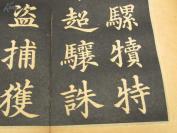 騾犢特
超驤誅
盜捕獲